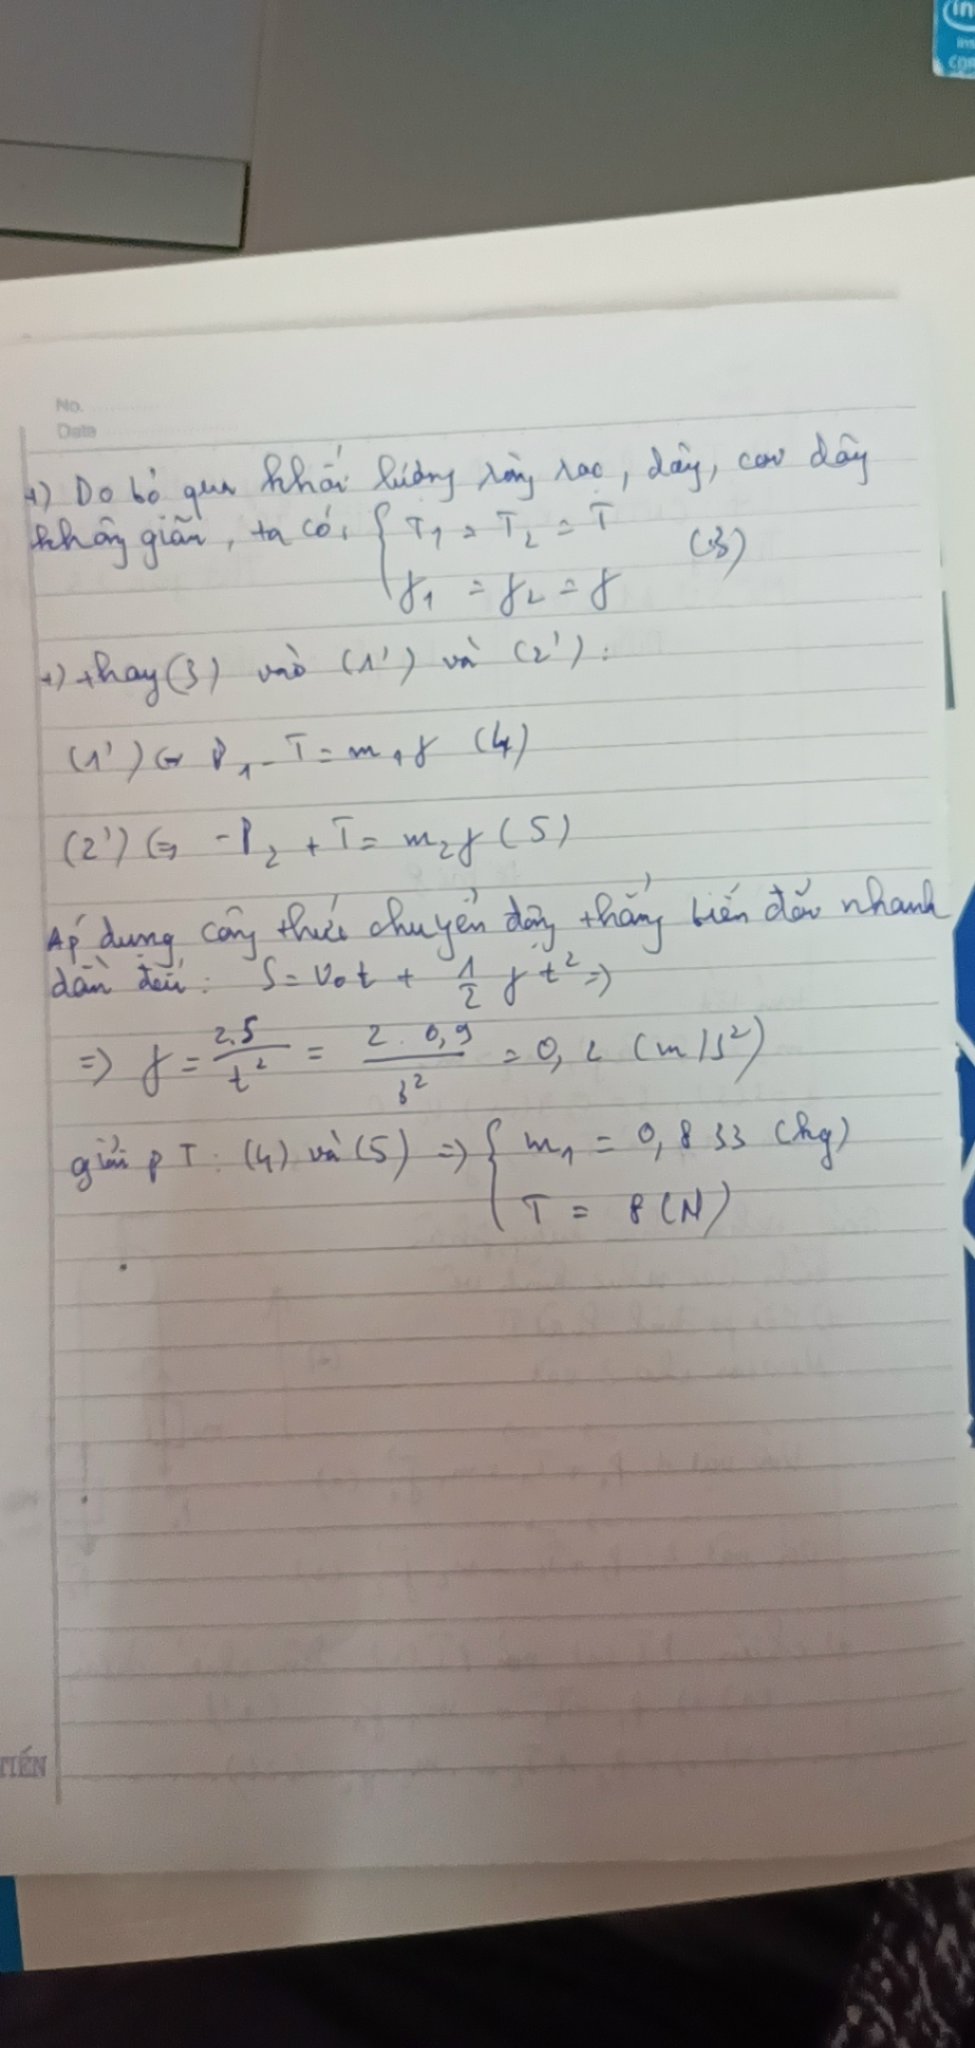 in
ins
COR
No.
Date
+) Do bỏ qua khối lượng ròng rọc, dây, coi dây
không giãn, ta có: { T1 = T2 = T
γ1 = γ2 = γ (3)
+) thay (3) vào (1') và (2') :
(1') <=> P1 - T = m1γ (4)
(2') <=> -P2 + T = m2γ (5)
Áp dụng công thức chuyển động thẳng biến đổi nhanh
dần đều: S = v0t + 1/2 γt² =>
=> γ = 2.S/t² = 2.0,9/3² = 0,2 (m/s²)
giải PT: (4) và (5) => { m1 = 0,833 (kg)
T = 8 (N)
TIẾN